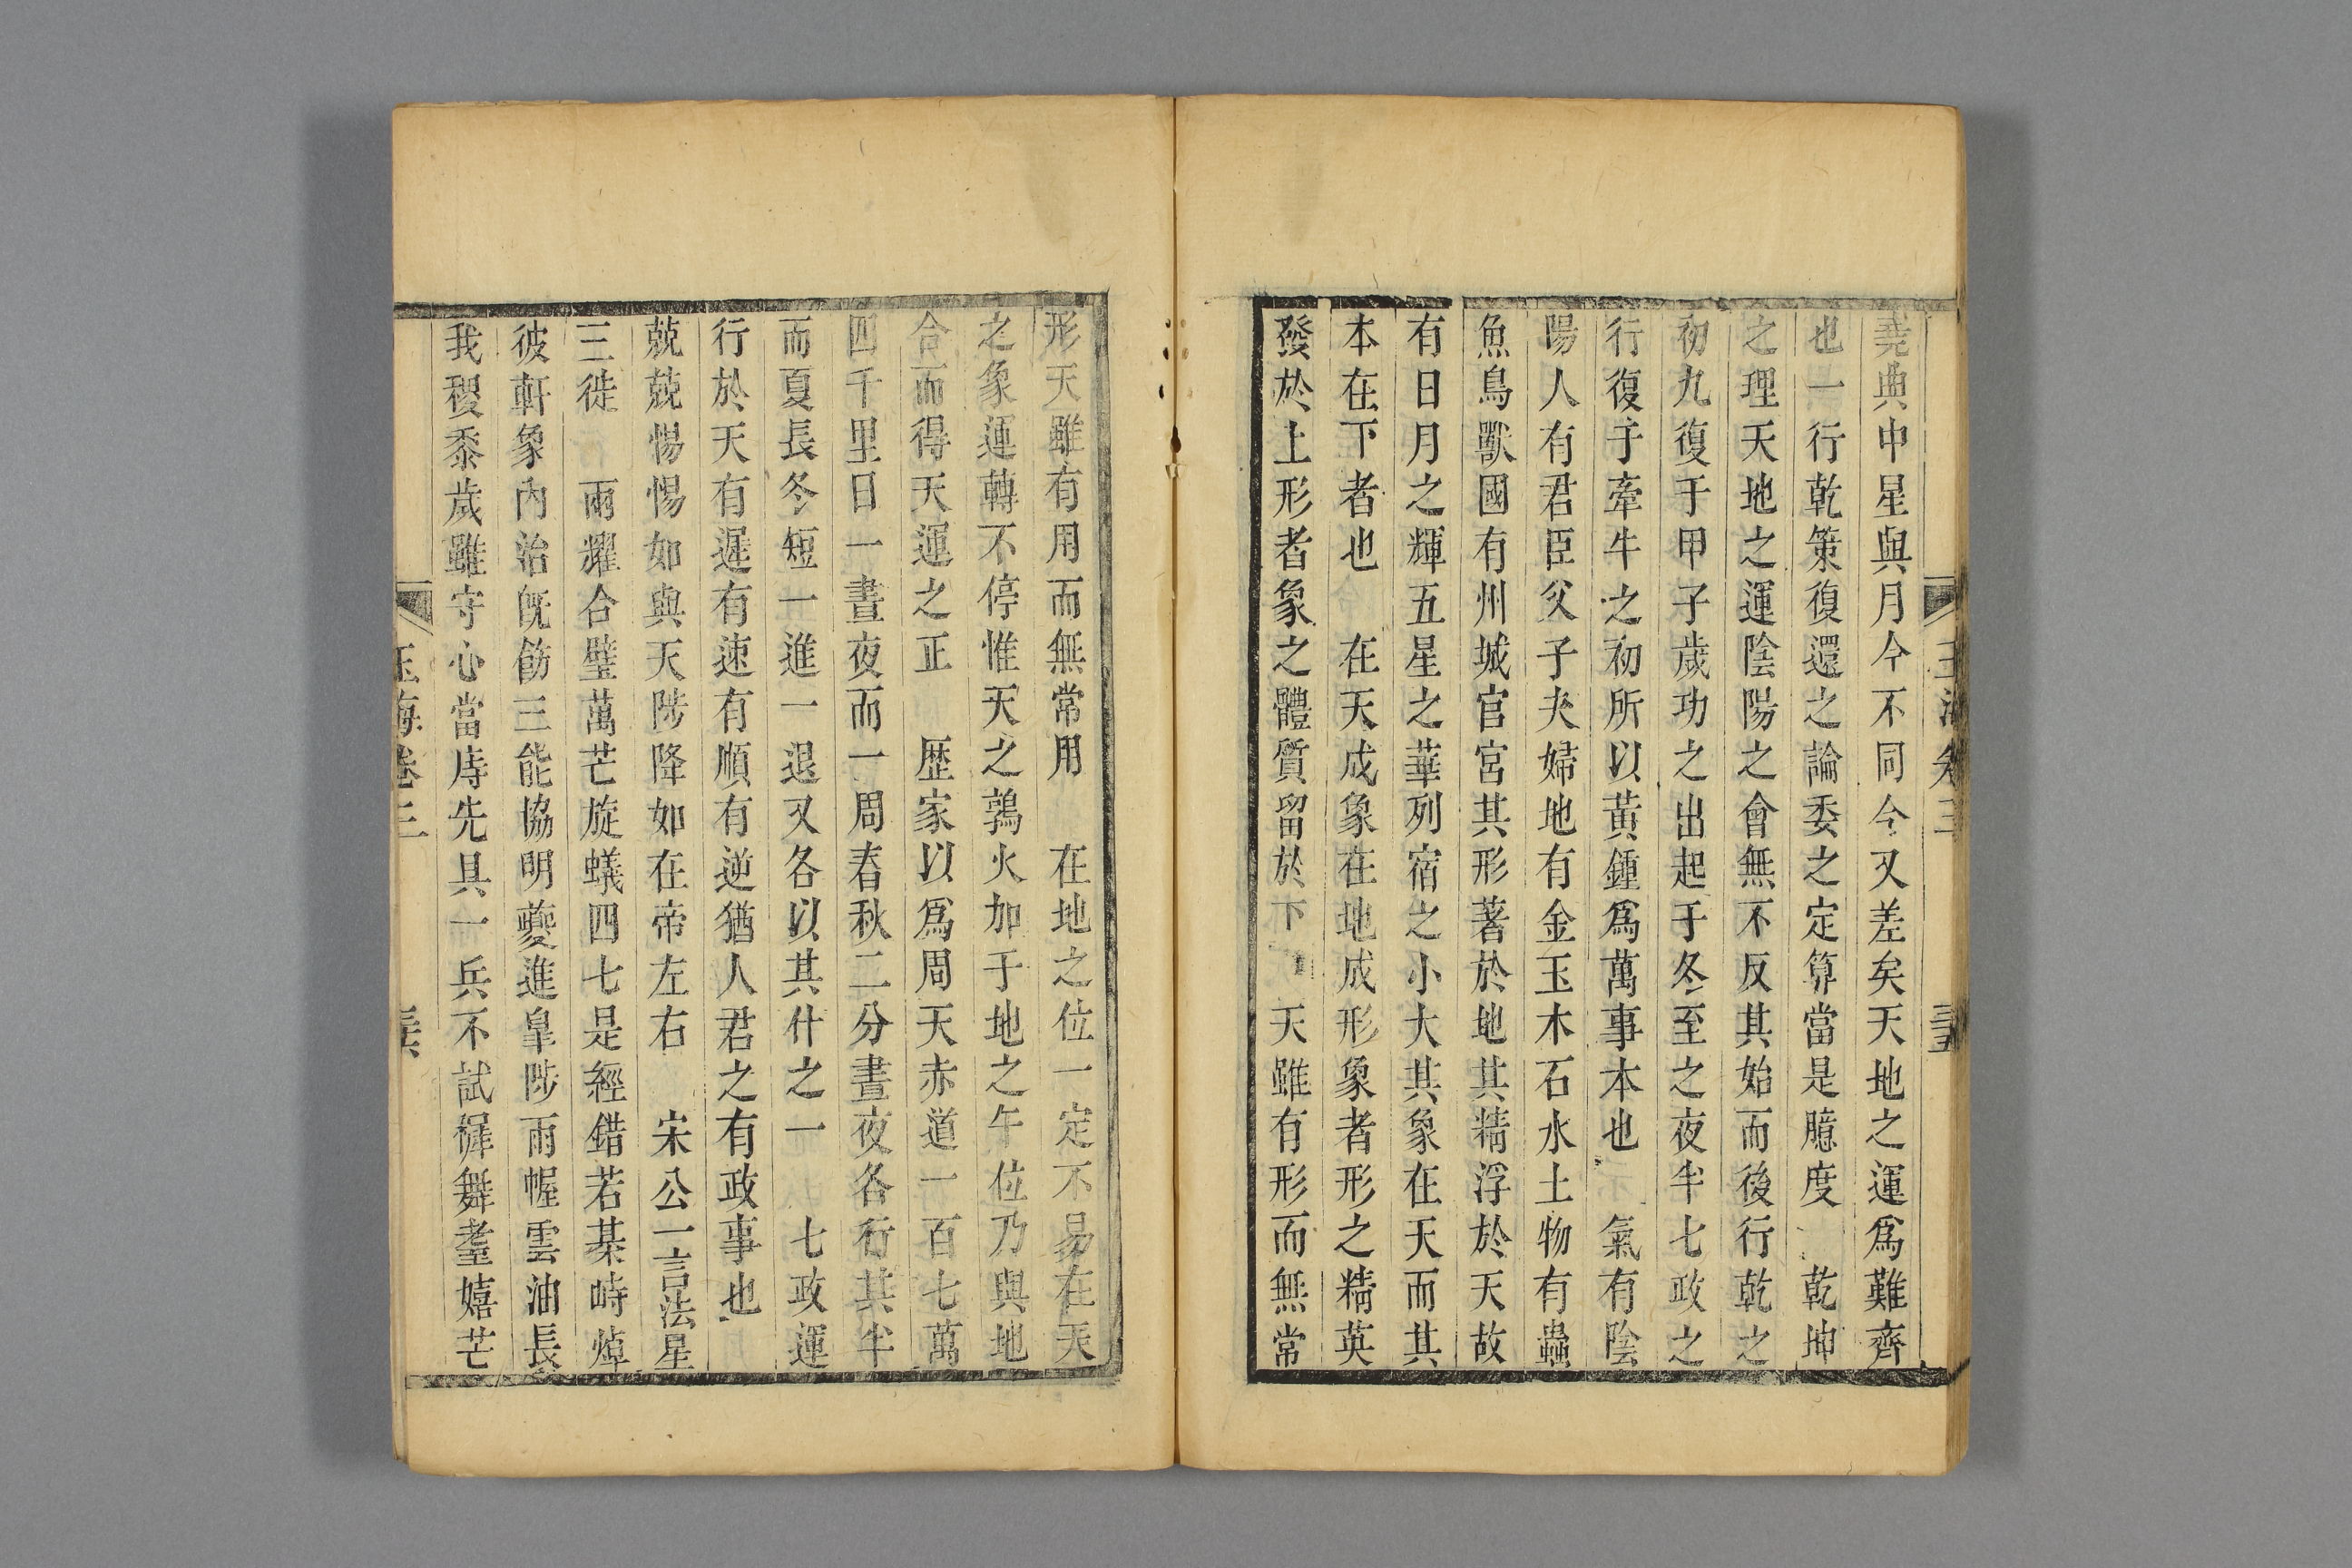 堯典中星與月令不同今又差矣天地之運爲難齊
也一行乾策復還之論委之定算當是臆度 乾坤
之理天地之運陰陽之會無不反其始而後行乾之
初九復于甲子歲功之出起于冬至之夜半七政之
行復于牽牛之初所以黃鍾爲萬事本也 氣有陰
陽人有君臣父子夫婦地有金玉木石水土物有蟲
魚鳥獸國有州城官宮其形著於地其精浮於天故
有日月之輝五星之華列宿之小大其象在天而其
本在下者也 在天成象在地成形象者形之精英
發於上形者象之體質留於下 天雖有形而無常
形天雖有用而無常用 在地之位一定不易在天
之象運轉不停惟天之鶉火加于地之午位乃與地
合而得天運之正 歴家以爲周天赤道一百七萬
四千里日一晝夜而一周春秋二分晝夜各行其半
而夏長冬短一進一退又各以其什之一 七政運
行於天有遲有速有順有逆猶人君之有政事也
兢兢惕惕如與天陟降如在帝左右 宋公一言法星
三徙 兩耀合璧萬芒旋蟻四七是經錯若棊峙焯
彼軒象內治旣飭三能協明夔進皐陟雨幄雲油長
我稷黍歲雖守心當庤先具一兵不試徲舞耋嬉芒
玉海卷三 三五
玉海卷三